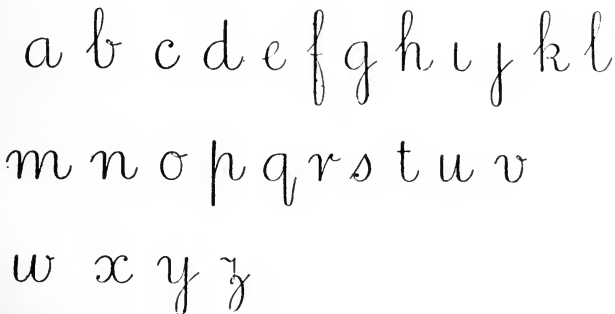 a b c d e f g h ı ȷ k l
m n o p q r s t u v
w x y z